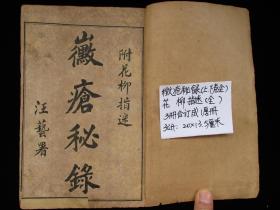 附花柳指迷
黴瘡秘錄
汪藝署
黴疮秘錄(上下卷全)
花柳指迷(全)
3册合订成1厚册
32开: 20×13.5厘米